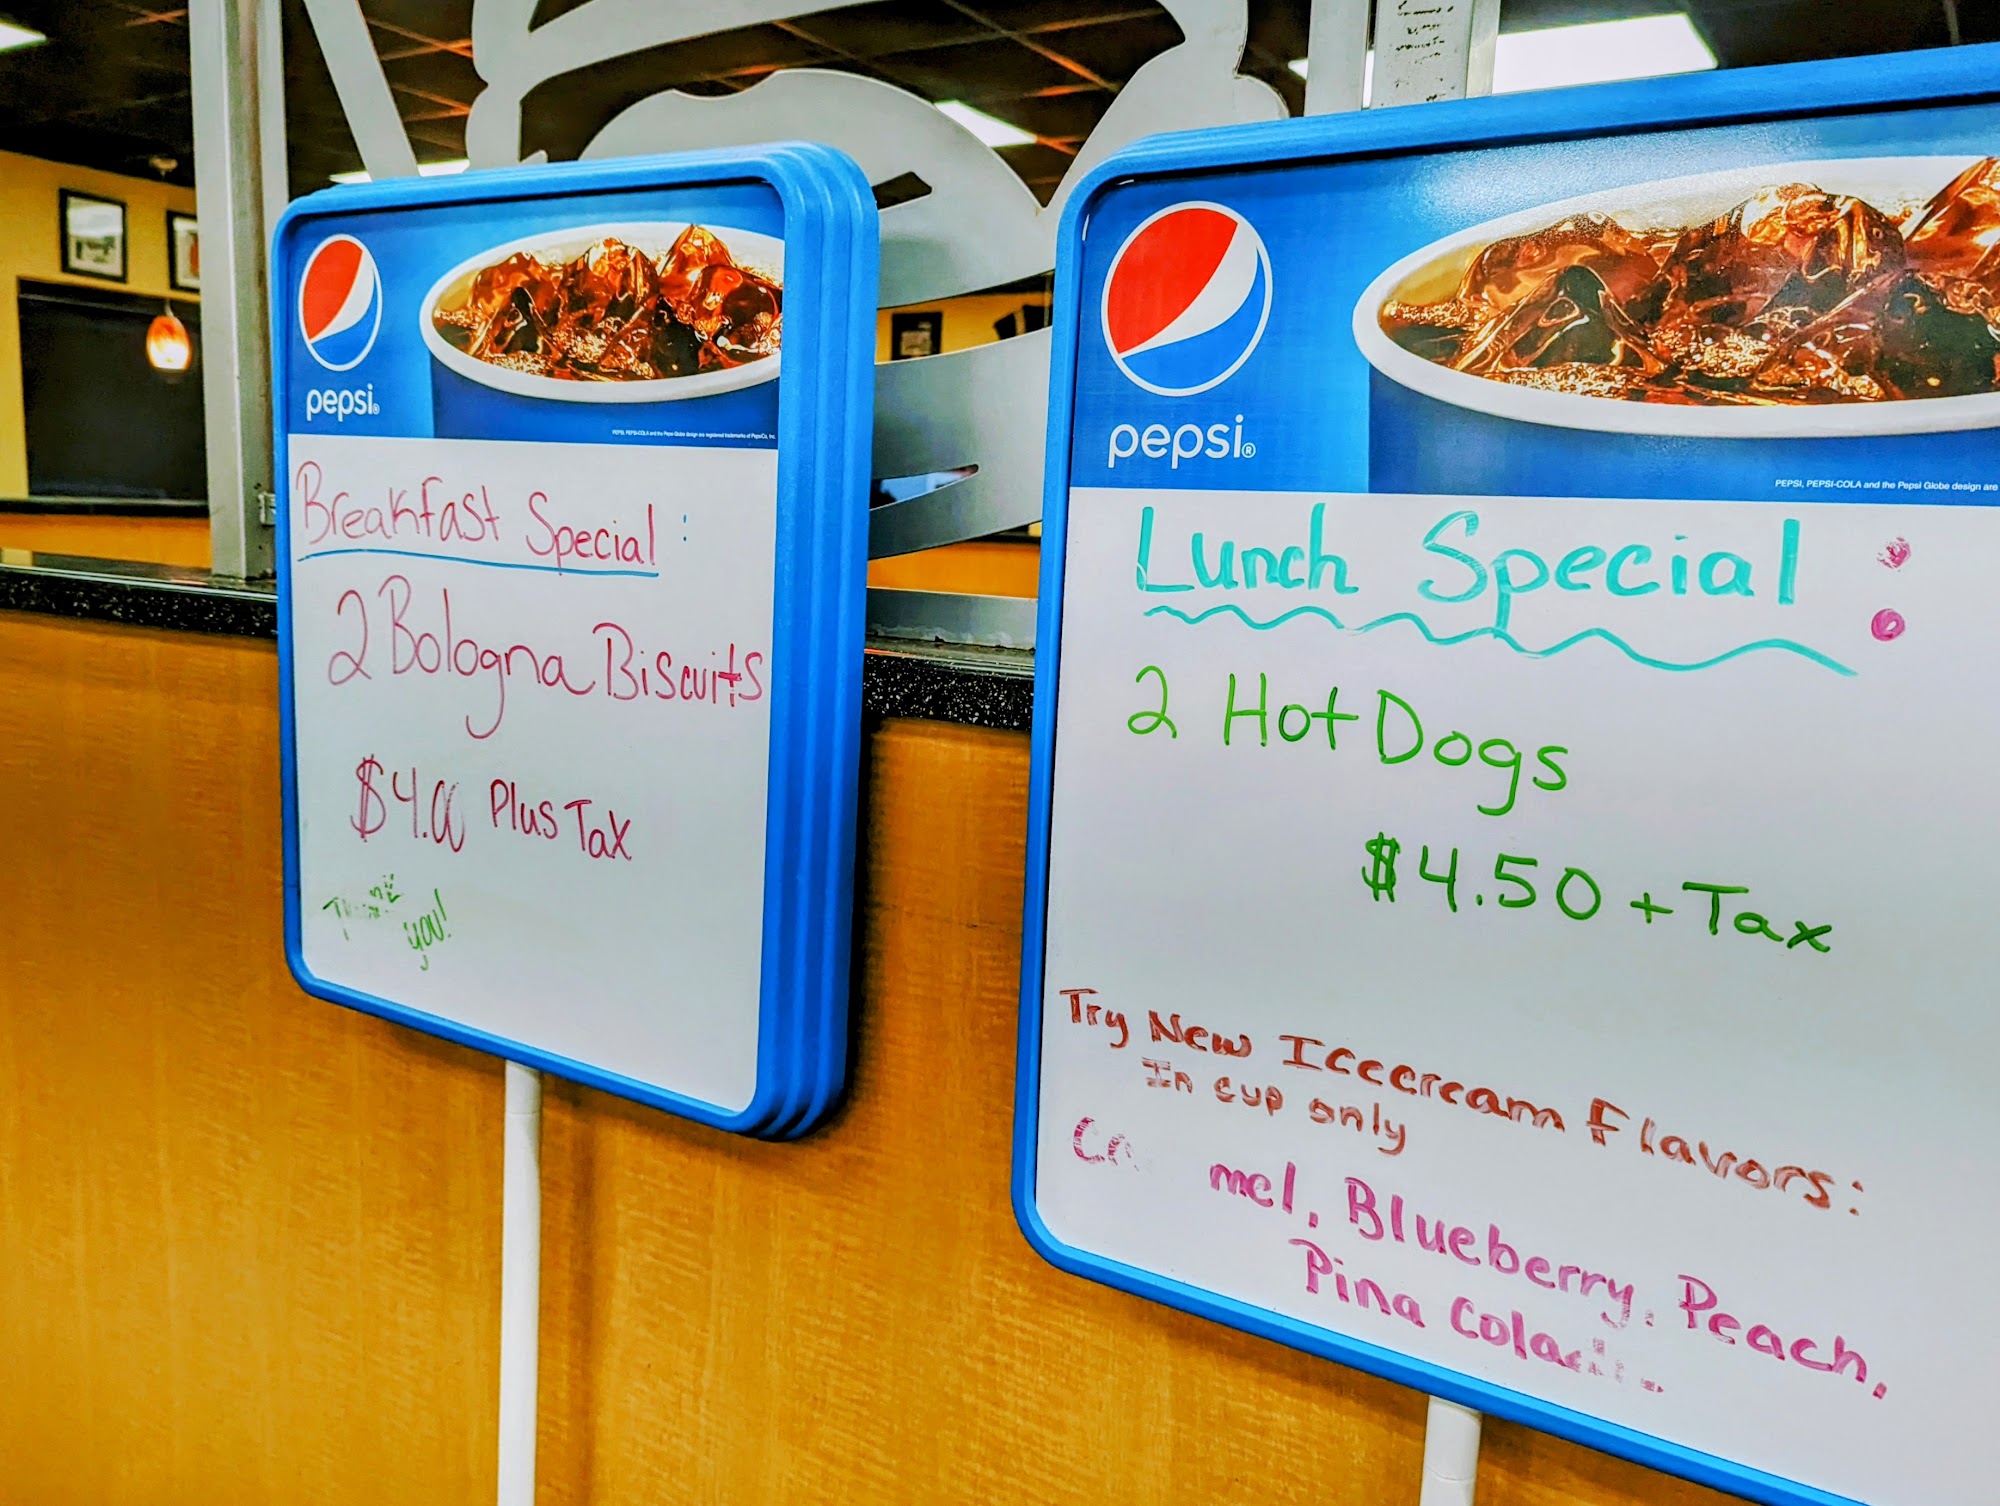 pepsi®
PEPSI, PEPSI-COLA and the Pepsi Globe design are registered trademarks of PepsiCo, Inc.
Breakfast Special :
2 Bologna Biscuits
$4.00 Plus Tax
Thank
you!
pepsi®
PEPSI, PEPSI-COLA and the Pepsi Globe design are
Lunch Special :
2 Hot Dogs
$4.50 + Tax
Try New Icecream Flavors:
In cup only
mel, Blueberry, Peach,
Pina